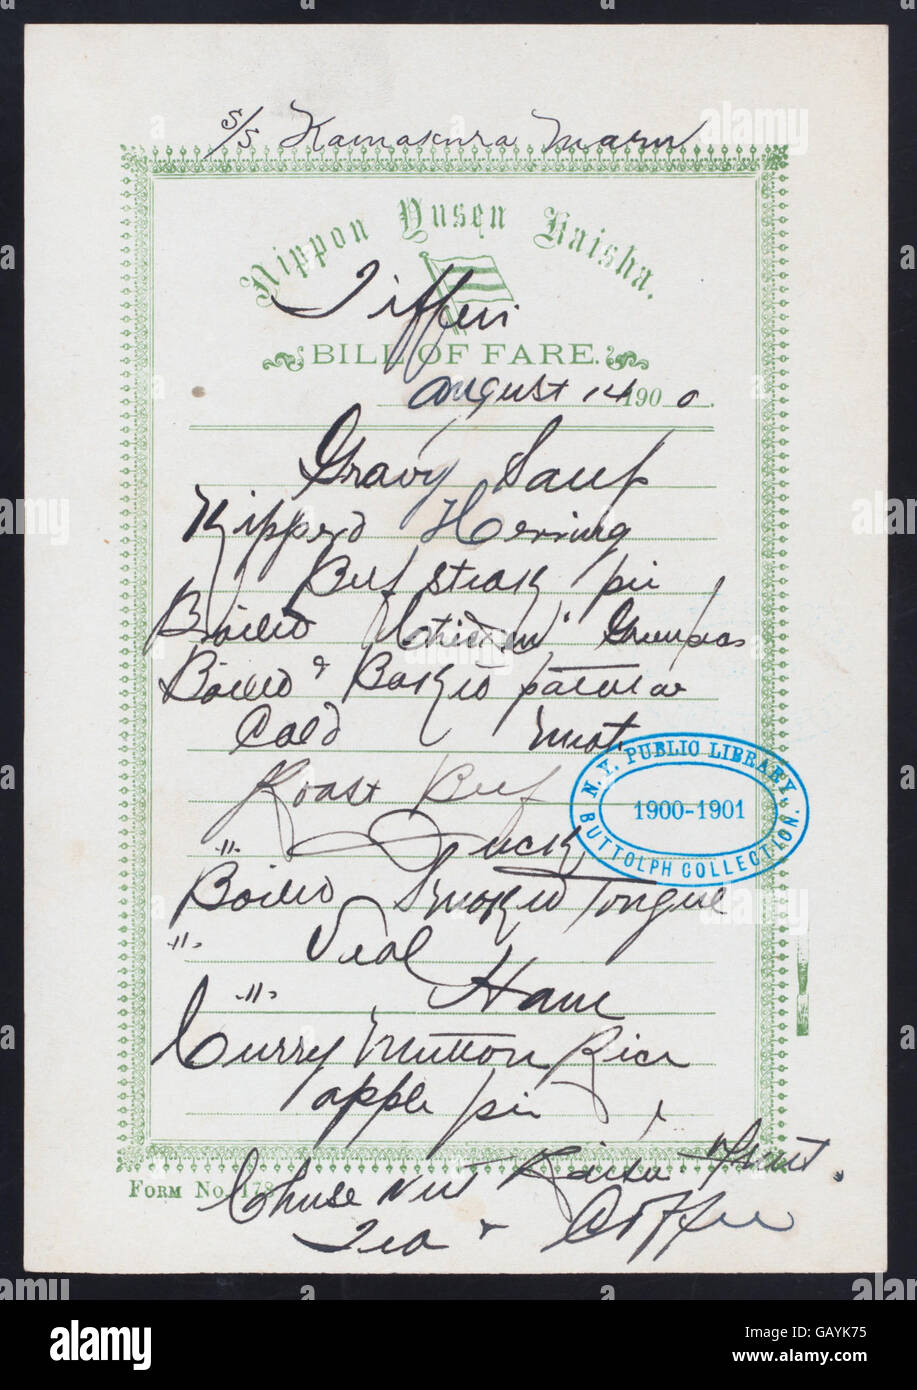 S/S Kamakura Maru
Nippon Yusen Kaisha.
Tiffin
BILL OF FARE.
August 14 1900.
Gravy Soup
Kipperd Herring
Beef steak pie
Boiled Green peas
Boiled & Baked potatoe
Cold meat
Roast Beef
" Duck
Boiled Smoked Tongue
" Veal
" Ham
Curry Mutton Rice
apple pie
Cheese Nut Raisin Fruit.
Tea & Coffee
FORM No. 178
N. Y. PUBLIC LIBRARY
1900-1901
BUTTOLPH COLLECTION.
alamy
alamy
GAYK75
www.alamy.com